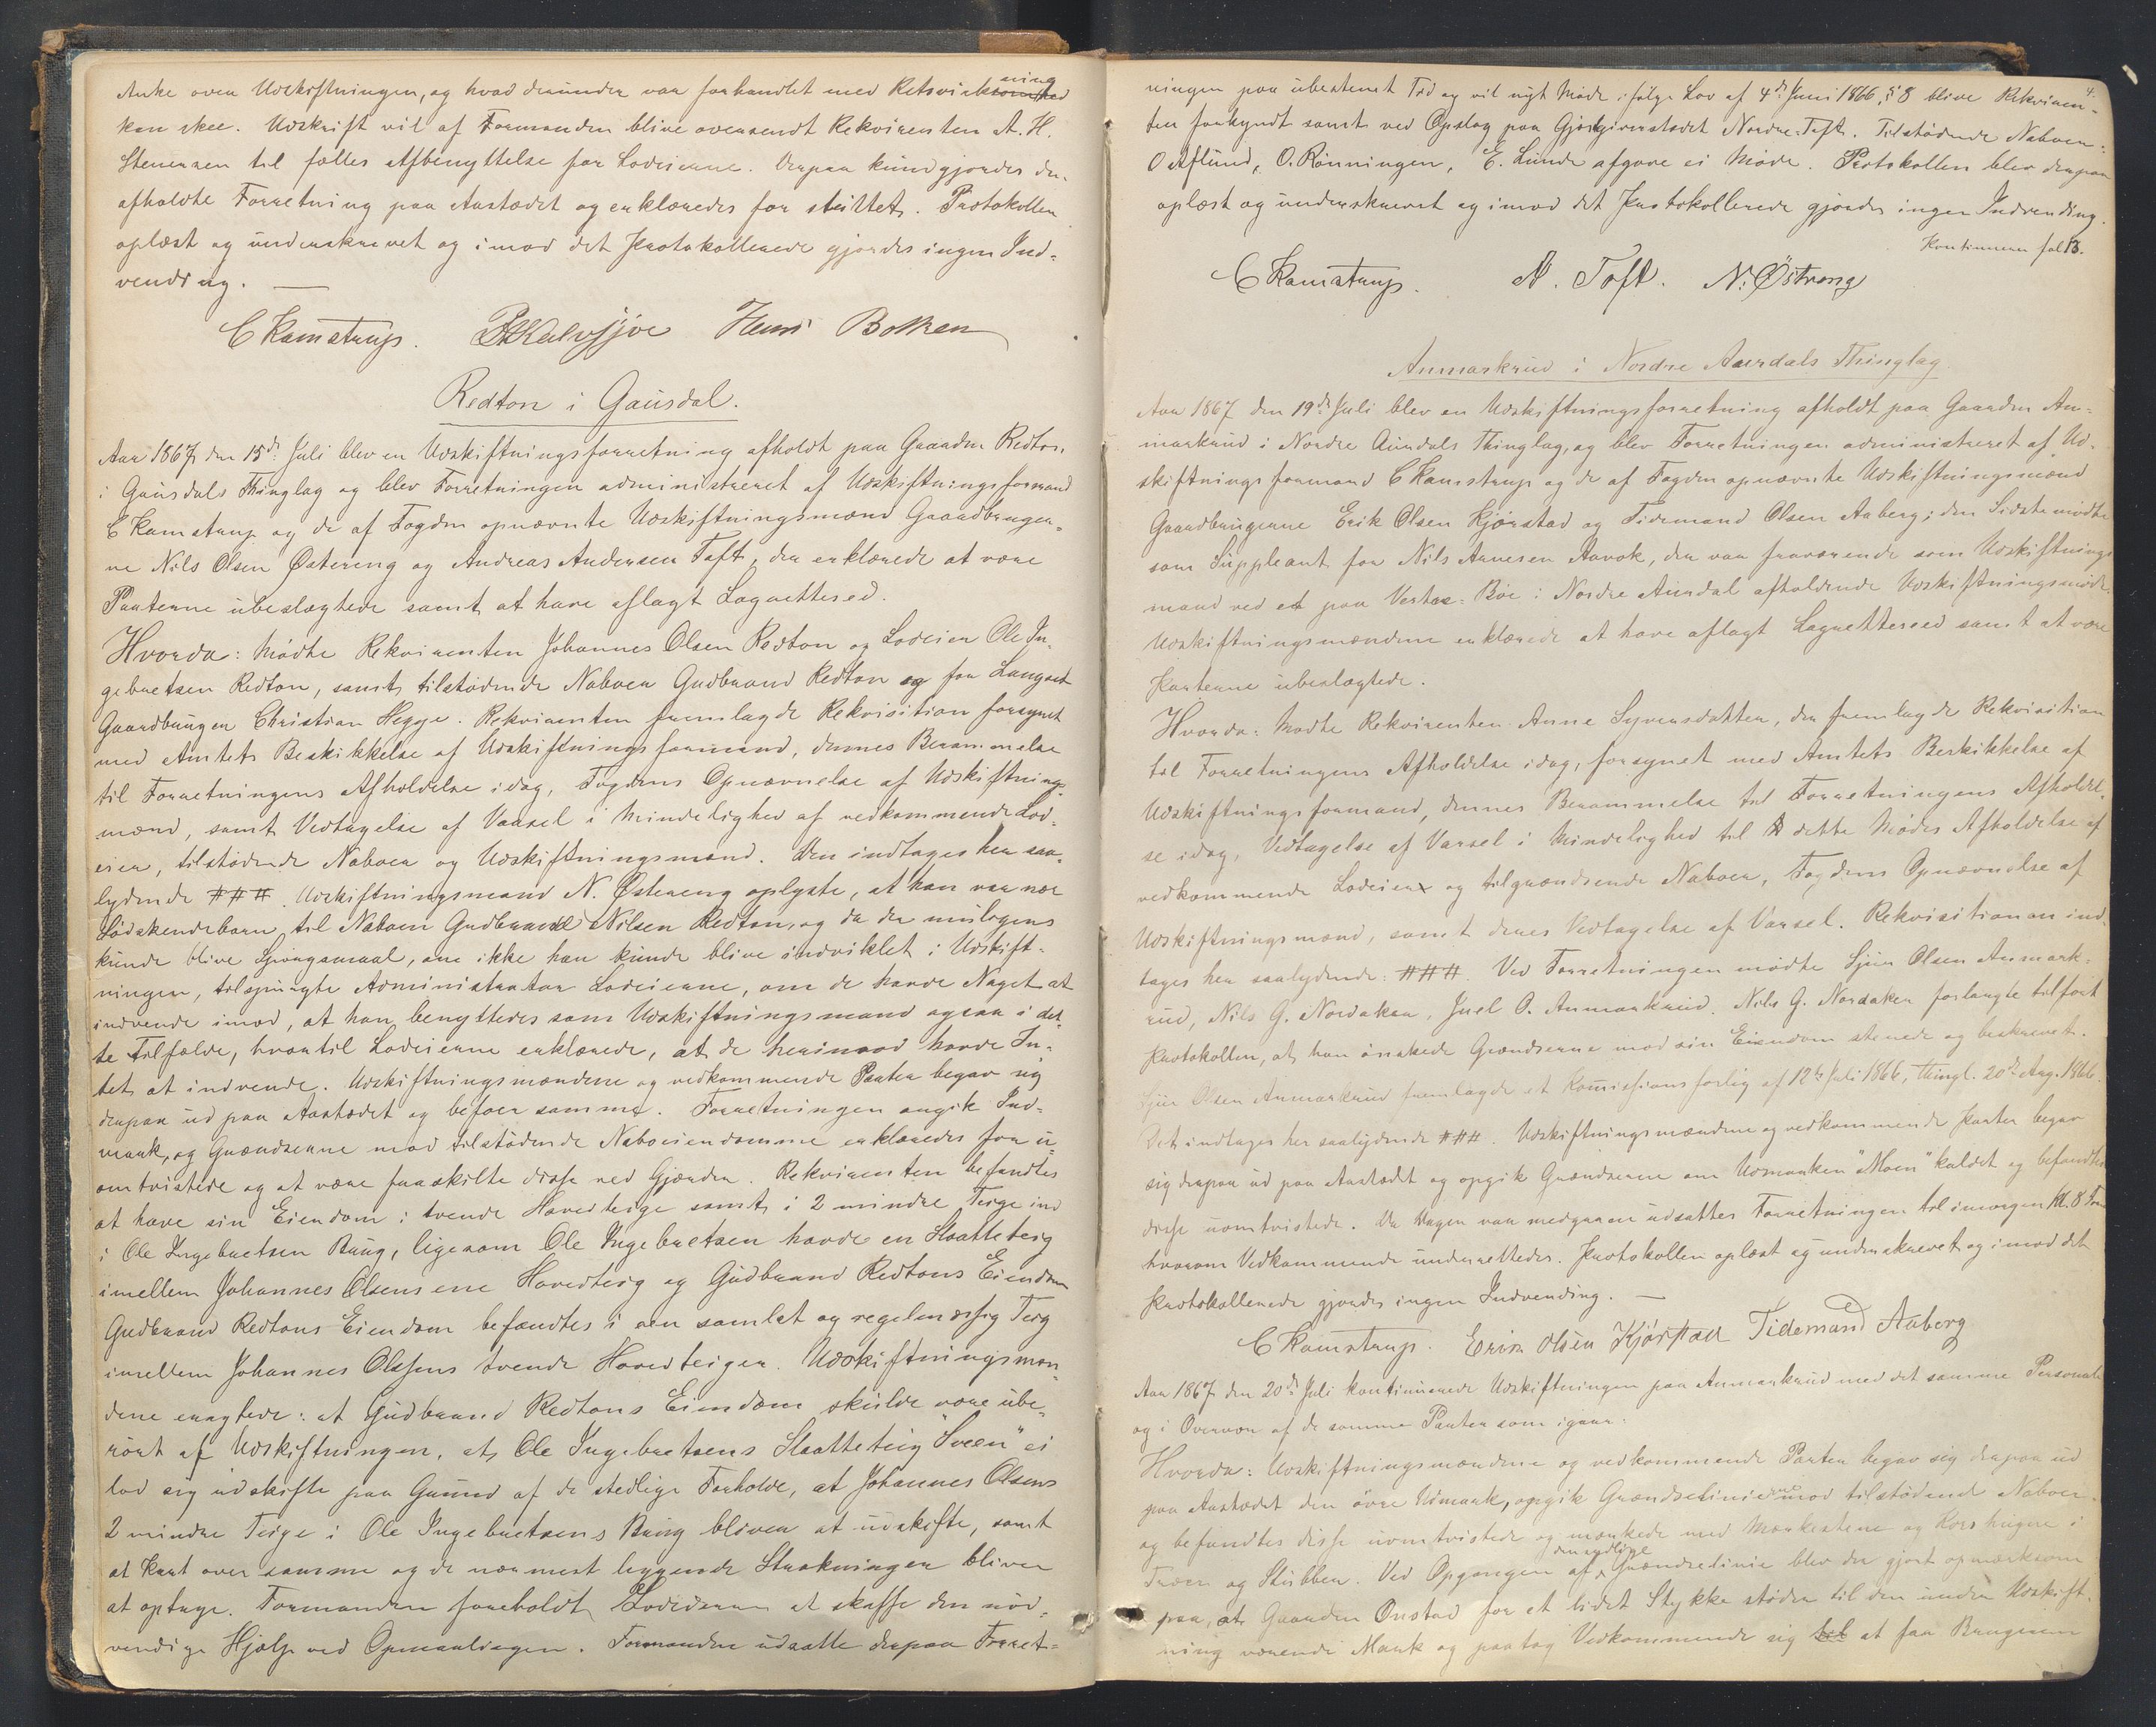 Anke over Udskiftningen, og hvad derunder var forhandlet med Retsvirkning
kan skee. Udskrift vil af Formanden blive oversendt Rekvirenten A. H.
Stenersen til fælles Afbenyttelse for Lodeierne. Derpaa kundgjordes den
afholdte Forretning paa Aastedet og erklæredes for sluttet. Protokollen
oplæst og underskrevet og imod det Protokollerede gjordes ingen Ind-
vending. —
C Kamstrup. Hensi Bolken
Redton i Gausdal.
Aar 1867 den 15de Juli blev en Udskiftningsforretning afholdt paa Gaarden Redton
i Gausdals Thinglag og blev Forretningen administreret af Udskiftningsformand
C Kamstrup og de af Fogden opnævnte Udskiftningsmænd Gaardbruger-
ne Nils Olsen Østereng og Andreas Andersen Toft, der erklærede at være
Parterne ubeslægtede samt at have aflagt Lagrettesed.
Hvorda: Mødte Rekvirenten Johannes Olsen Redton og Lodeier Ole In-
gebretsen Redton, samt tilstødende Naboer Gudbrand Redton og for Langset
Gaardbruger Christian Hegge. Rekvirenten fremlagde Rekvisition forsynet
med Amtets Beskikkelse af Udskiftningsformand, dennes Berammelse
til Forretningens Afholdelse idag, Fogdens Opnævnelse af Udskiftnings-
mænd, samt Vedtagelse af Varsel i Mindelighed af vedkommende Lod-
eier, tilstødende Naboer og Udskiftningsmænd. Den indtages her saa-
lydende ###. Udskiftningsmand N. Østereng oplyste, at han var nær
Sødskendebarn til Naboen Gudbrand Nilsen Redton, og da der muligens
kunde blive Spørgsmaal, om ikke han kunde blive indviklet i Udskift-
ningen, tilspurgte Administrator Lodeierne, om de havde Noget at
indvende imod, at han benyttedes som Udskiftningsmand ogsaa i det-
te Tilfælde, hvortil Lodeierne erklærede, at de herimod havde In-
tet at indvende. Udskiftningsmændene og vedkommende Parter begav sig
derpaa ud paa Aastedet og befoer samme. Forretningen angik Ind-
mark, og Grændserne mod tilstødende Naboeiendomme erklæredes for u-
omtvistede og at være fraskilte disse ved Gjærder. Rekvirenten befandtes
at have sin Eiendom i tvende Hovedteige samt i 2 mindre Teige ind
i Ole Ingebretsen Brug, ligesom Ole Ingebretsen havde en Slaatteteig
imellem Johannes Olsens ene Hovedteig og Gudbrand Redtons Eiendom
Gudbrand Redtons Eiendom befandtes i een samlet og regelmæssig Teig
imellem Johannes Olsens tvende Hovedteiger. Udskiftningsmæn-
dene eragtede: at Gudbrand Redtons Eiendom skulde være ube-
rørt af Udskiftningen, at Ole Ingebretsens Slaatteteig "Sveen" ei
lod sig udskifte paa Grund af de stedlige Forholde, at Johannes Olsens
2 mindre Teige i Ole Ingebretsens Brug bliver at udskifte, samt
at Kart over samme og de nærmest liggende Strækninger bliver
at optage. Formanden foreholdt Lodeierne at skaffe den nød-
vendige Hjælp ved Opmaalingen. Formanden udsatte derpaa Forret-
4.
ningen paa ubestemt Tid og vil nyt Møde ifølge Lov af 4de Juni 1866, § 8 blive Rekviren-
ten forkyndt samt ved Opslag paa Gjæstgiverstedet Nordre-Toft. Tilstødende Naboer:
O Aflund, O. Rønningen, E. Lunde afgave ei Møde. Protokollen blev derpaa
oplæst og underskrevet og imod det Protokollerede gjordes ingen Indvending.
Kontinuerer fol 13.
C Kamstrup. A. Toft. N. Østreng
Anmarkrud i Nordre Aurdals Thinglag
Aar 1867 den 19de Juli blev en Udskiftningsforretning afholdt paa Gaarden An-
markrud i Nordre Aurdals Thinglag, og blev Forretningen administreret af Ud-
skiftningsformand C Kamstrup og de af Fogden opnævnte Udskiftningsmænd
Gaardbrugerne Erik Olsen Kjørstad og Tidemand Olsen Aaberg; den Sidste mødte
som Suppleant for Nils Arnesen Aavok, der var fraværende som Udskiftnings
mand ved et paa Vestre-Bøe i Nordre Aurdal afholdende Udskiftningsmøde.
Udskiftningsmændene erklærede at have aflagt Lagrettesed samt at være
Parterne ubeslægtede.
Hvorda: Mødte Rekvirenten Anne Syversdatter, der fremlagde Rekvisition
til Forretningens Afholdelse idag, forsynet med Amtets Beskikkelse af
Udskiftningsformand, dennes Berammelse til Forretningens Afholdel-
se idag, Vedtagelse af Varsel i Mindelighed til dette Mødes Afholdelse af
vedkommende Lodeier og tilgrændsende Naboer, Fogdens Opnævnelse af
Udskiftningsmænd, samt deres Vedtagelse af Varsel. Rekvisitionen ind-
tages her saalydende: ###. Ved Forretningen mødte Sjur Olsen Anmark-
rud, Nils G. Nordaker, Juel O. Anmarkrud. Nils G. Nordaker forlangte tilført
Protokollen, at han ønskede Grændserne mod sin Eiendom stenede og beskrevet.
Sjur Olsen Anmarkrud fremlagde et Komissionsforlig af 12te Juli 1866, thingl. 20de Aug. 1866.
Det indtages her saalydende ###. Udskiftningsmændene og vedkommende Parter begav
sig derpaa ud paa Aastedet og opgik Grændserne om Udmarken "Moen" kaldet og befandtes
disse uomtvistede. Da Dagen var medgaaen udsattes Forretningen til imorgen Kl. 8 Fm
hvorom Vedkommende underrettedes. Protokollen oplæst og underskrevet og imod det
Protokollerede gjordes ingen Indvending. —
C Kamstrup. Erik Olsen Kjørstad Tidemand Aaberg
Aar 1867 den 20de Juli kontinuerede Udskiftningen paa Anmarkrud med det samme Personale
og i Overvær af de samme Parter som igaar:
Hvorda: Udskiftningsmændene og vedkommende Parter begav sig derpaa ud
paa Aastedet den øvre Udmark, opgik Grændselinierne mod tilstødende Naboer
og befandtes disse uomtvistede og mærkede med Mærkestene og Kors hugne i
Træer og Stubber. Ved Opgangen af den sydlige Grændselinie blev der gjort opmærksom
paa, at Gaarden Onstad for et lidet Stykke støder til den under Udskift-
ning værende Mark og paatog Vedkommende sig at faa Brugeren